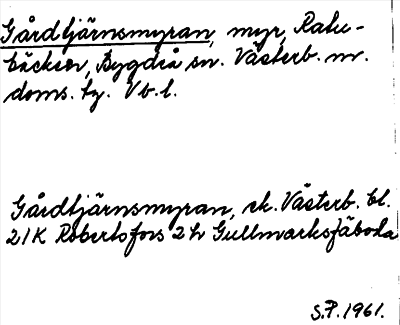 Gårdtjärnsmyran, myr, Rake-
bäcksen, Bygdeå sn. Västerb. nr.
doms. tg. Vb. l.
Gårdtjärnsmyran, ek. Västerb. bl.
21K Robertsfors 2h Gullmarksfäboda
S.P. 1961.